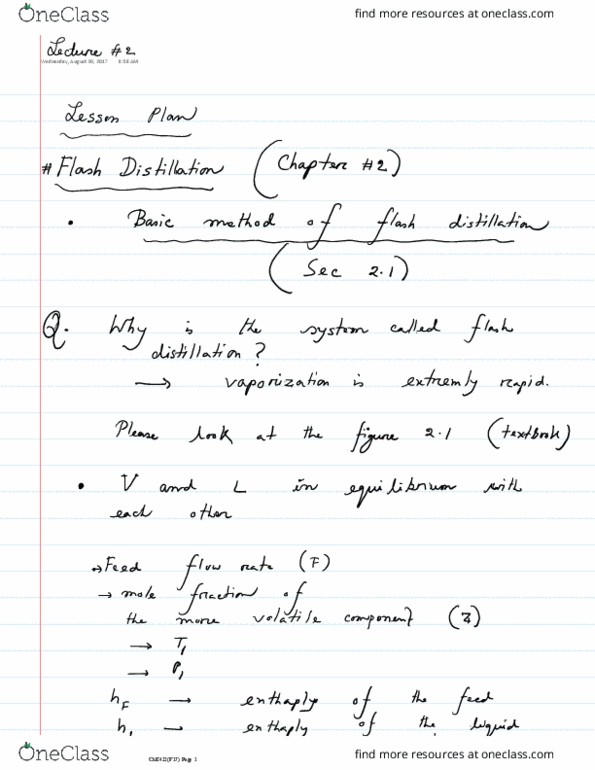 OneClass
find more resources at oneclass.com
Lecture #2
Wednesday, August 30, 2017 8:58 AM
Lesson Plan
# Flash Distillation (Chapter #2)
• Basic method of flash distillation
(Sec 2.1)
Q. Why is the system called flash
distillation?
→ vaporization is extremly rapid.
Please look at the figure 2.1 (textbook)
• V and L in equilibrium with
each other
→ Feed flow rate (F)
→ mole fraction of
the more volatile component (z)
→ T₁
→ P₁
h_F → enthaply of the feed
h₁ → enthaply of the liquid
OneClass
Page 1
find more resources at oneclass.com